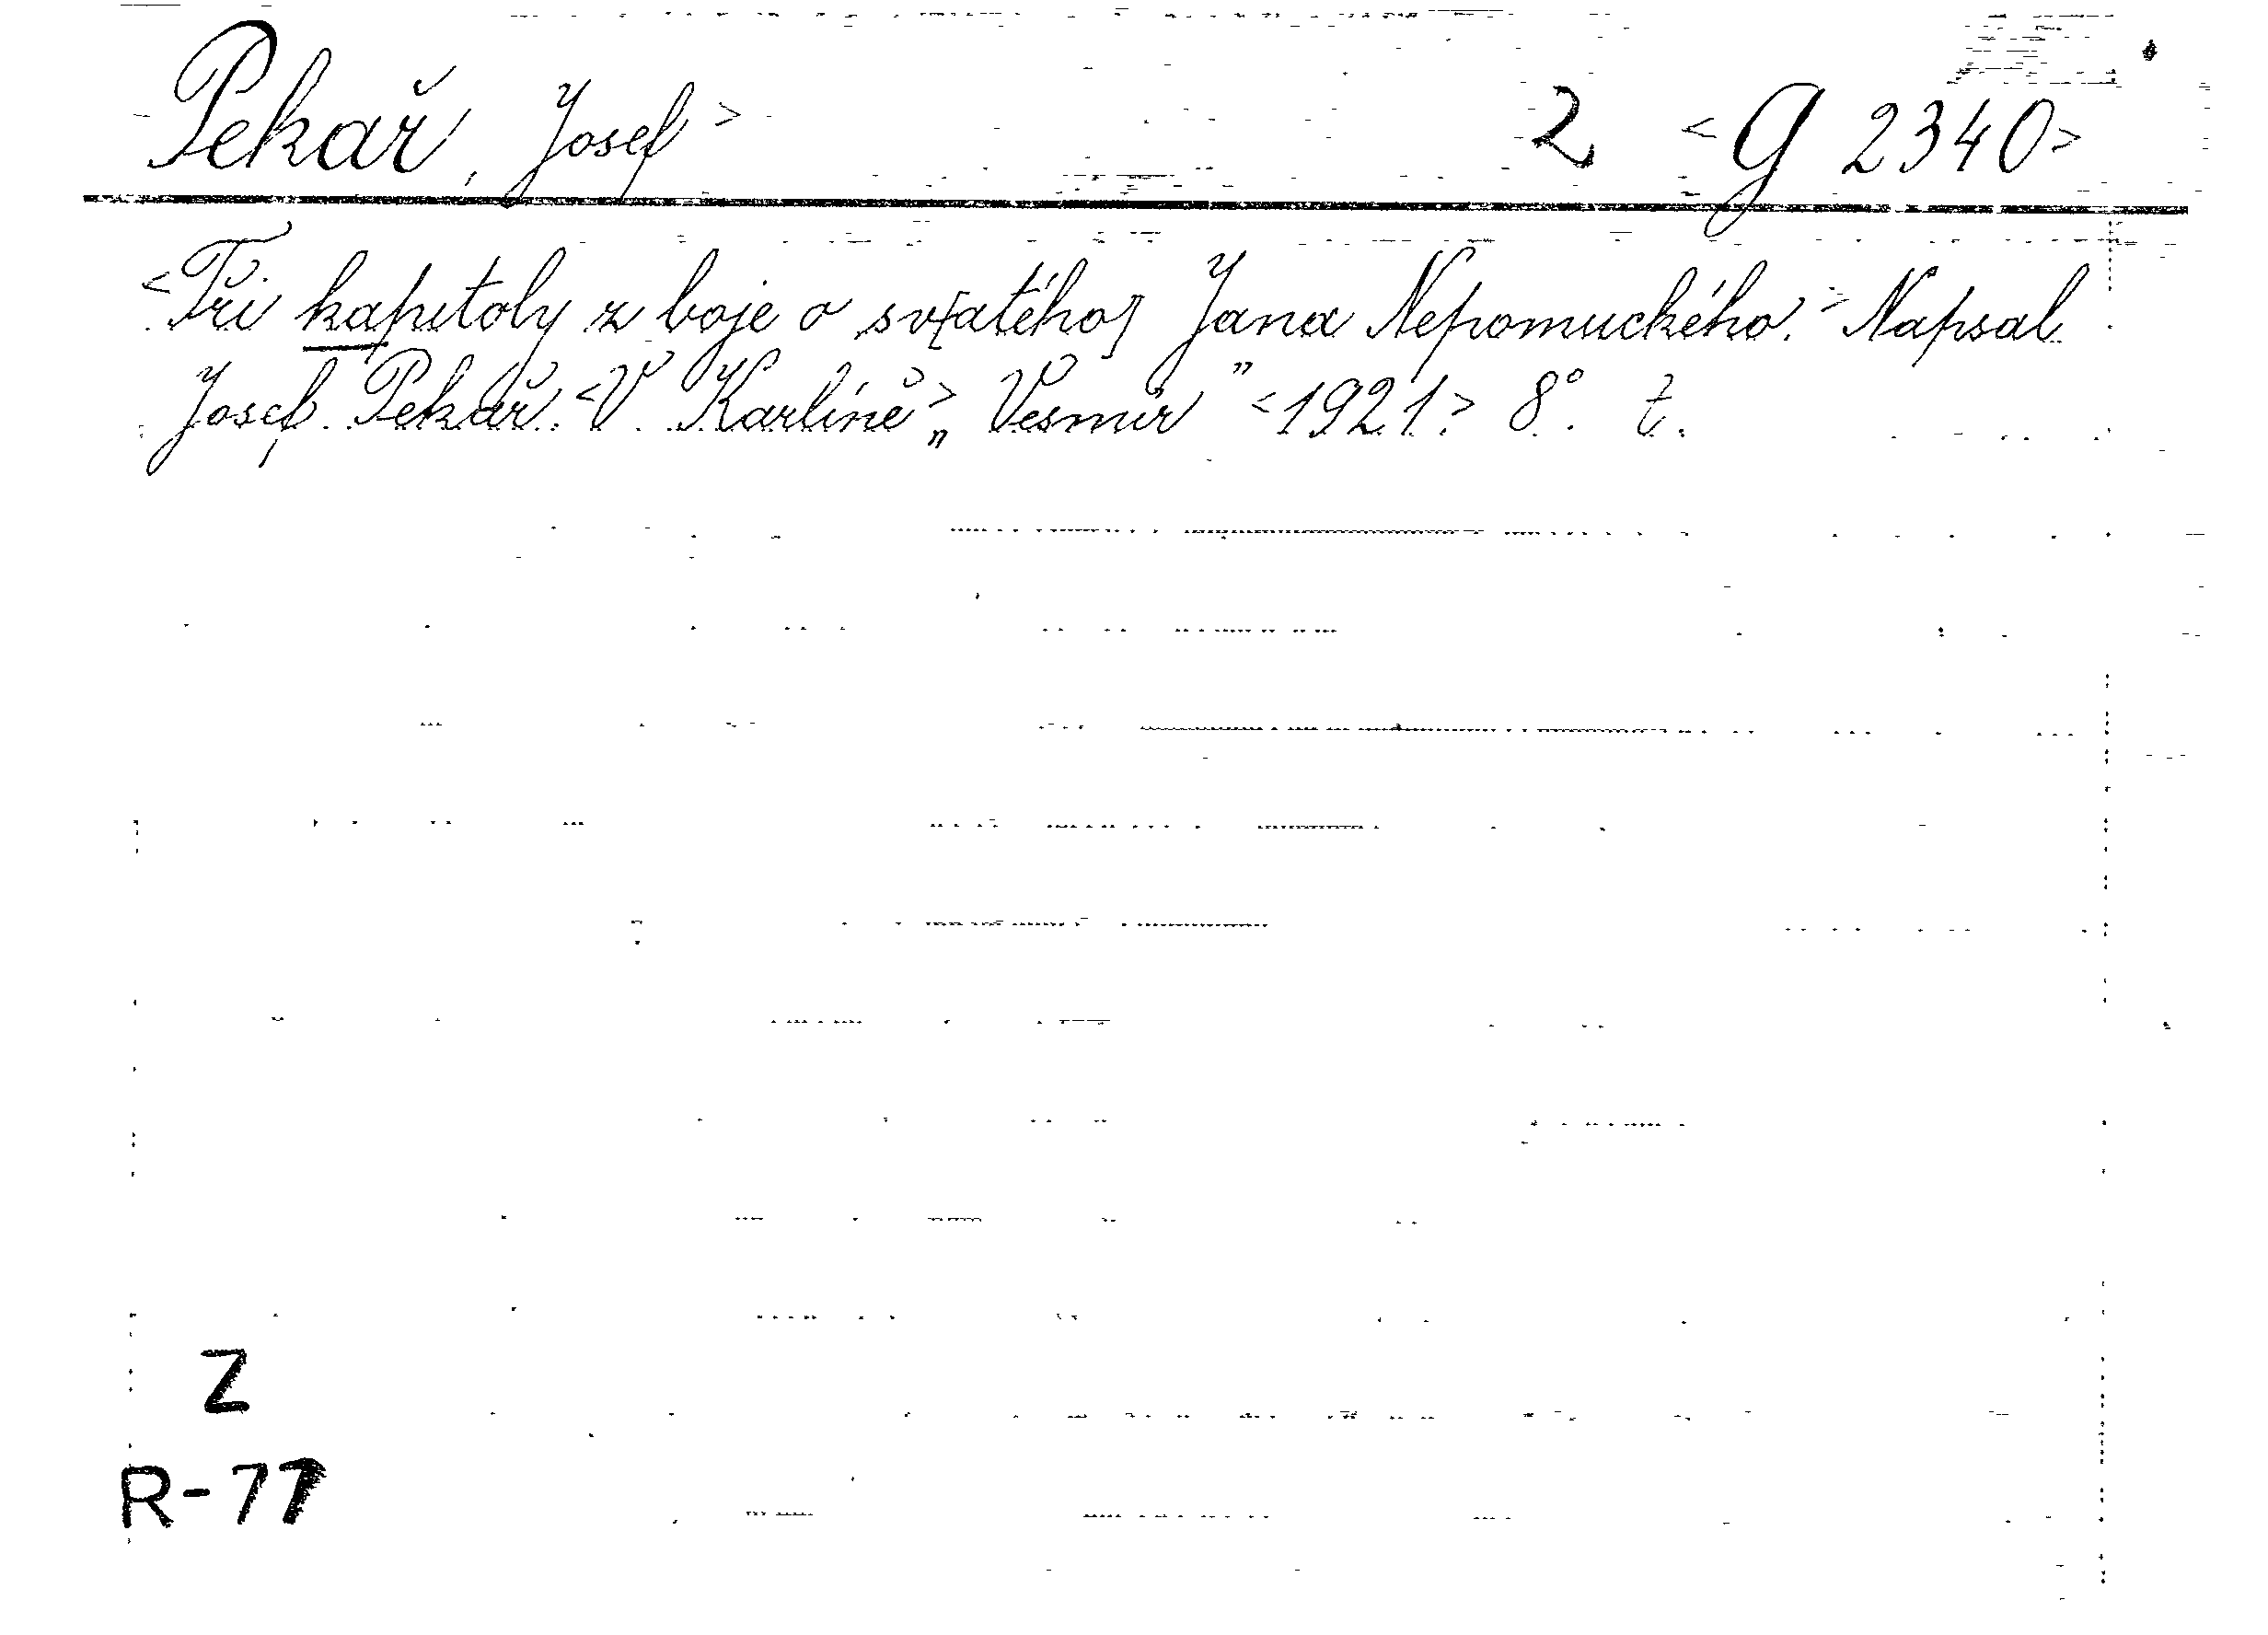 Pekař, Josef> 2 <G 2340>
<Tři kapitoly z boje o sv[atého] Jana Nepomuckého.> Napsal
Josef Pekař. <V Karlíně> „Vesmír” <1921> 8°. t.
Z
R-77